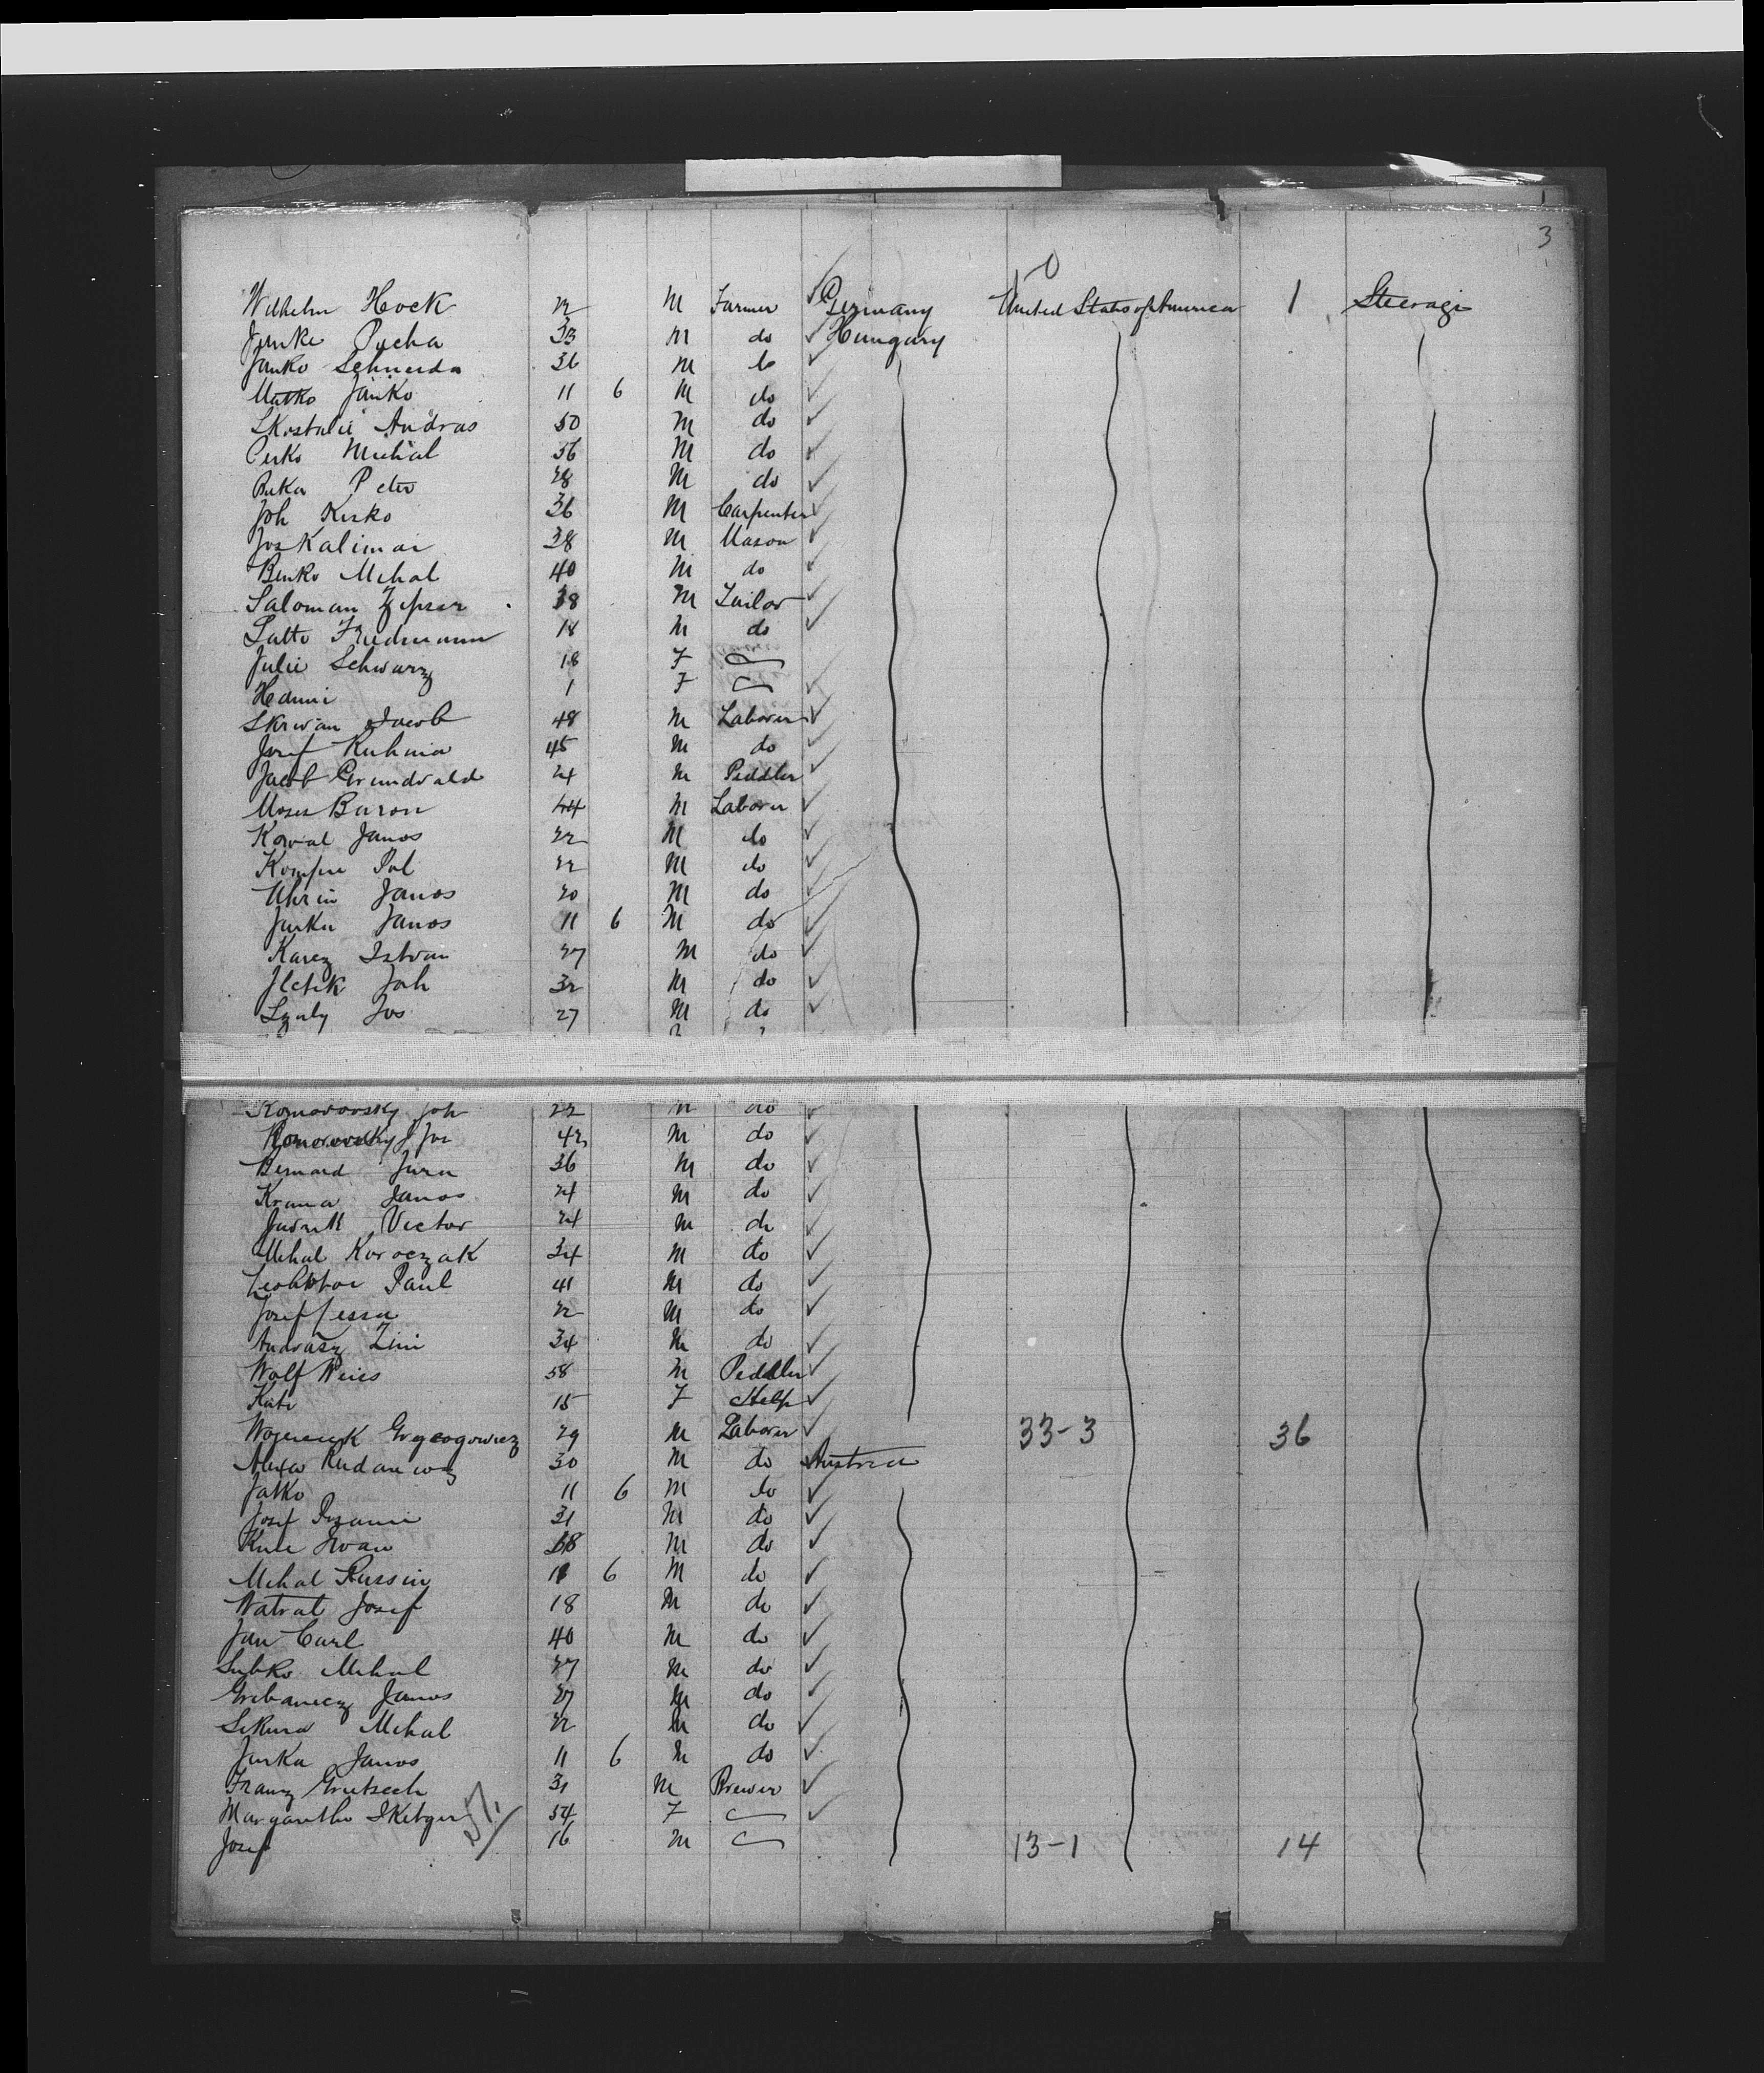 3
Wilhelm Hock 22 M Farmer Germany United States of America 1 Steerage
Janko Pucha 33 M do Hungary
Janko Schneida 36 M do
Matko Janko 11 6 M do
Andras 50 M do
Michal 56 M do
Peter 28 M do
Joh Kesko 36 M Carpenter
Jos Kalimar 38 M Mason
Benko Mihal 40 M do
Saloman Zipser 38 M Tailor
Friedmann 18 M do
Julie Schwarz 18 F
Hanni 1 F
Skrivan Jacob 48 M Laborer
Josef Kuhnia 45 M do
Jacob Grundvald 24 M Peddler
Moses Baron 44 M Laborer
Koval Janos 22 M do
Pal 22 M do
Uhrin Janos 20 M do
Jurka Janos 11 6 M do
Karez Istvan 27 M do
Joh 32 M do
Jos 27 M do
Komorovsky Joh 22 M do
Komorovsky Jos 42 M do
Bernard Jura 36 M do
Janos 24 M do
Victor 24 M do
Mihal Koroczak 34 M do
Paul 41 M do
Josef 22 M do
Andrasz Zini 34 M do
Wolf Weiss 58 M Peddler
Kati 15 F Help
29 M Laborer 33-3 36
30 M do Austria
Jatko 11 6 M do
Josef 31 M do
Iwan 38 M do
Mihal Russin 11 6 M do
Watrat Josef 18 M do
Jan Carl 40 M do
Mihal 27 M do
Grebanicz Janos 27 M do
Sekura Mihal 22 M do
Jurka Janos 11 6 M do
Franz Grutsch 31 M Brewer
Margarethe 54 F
Josef 16 M 13-1 14